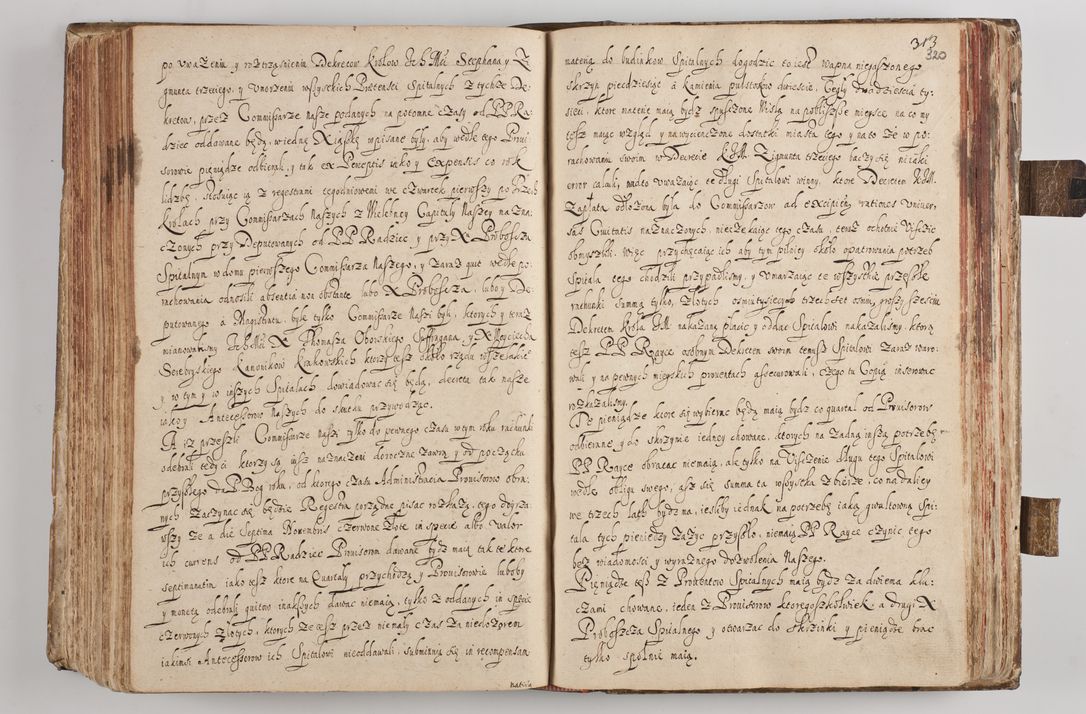 po uważeniu y roztrząsnieniu Dekretow Krolow JchMci Stephana y Zy
gmunta trzeciego, y umorzeniu wszystkich Pretensii Spitalnych z tychże De:
kretow, przez Commissarze nasze podanych na potomne czasy od PP Ra:
dziec oddawane będą, wiednę Xiąszkę wpisane były, aby wedle tego Prowi
sorowie pieniądze odbierali, y tak ex Perceptis iako y Expensis co rok
liczbę, stosuiąc ią z regestrami tegodniowemi we czwartek pierwszy po Trzech
Krolach przy Commissarzach Naszych z Wielebney Capituły Naszey nazna:
czonych przy Deputowanych od PP Radziec y przy X Proboszczu
Spitalnym w domu pierwszego Commissarza Naszego, y zaraz quit wedle po:
rachowania odnosili absentia non obstante lubo X Proboszcza, lubo y De:
putowanego a Magistratu, byle tylko Commissarze Naszi byli, ktorych y teraz
mianowalismy JchMci X Thomasza Oborskiego Suffragana y X Woyciecha
Serebryskiego Kanonikow Krakowskich, ktorzy tesz około rządu wszelakie
y w tym y w inszych Spitalach dowiadować się będą, decreta tak nasze
iako y Antecessorow Naszych do skutku przywodząc.
A isz przeszli Commissarze Naszi tylko do pewnego czasu w tym roku rachunki
odebrali tedy ci ktorzy są isz naznaczeni doroczne zawrą, y od początku
przyszłego da P. Bog roku, od ktorego czasu Administracia Prowisorow obra:
nych zaczynac się będzie Regestra porządne pisac rozkażą, tego doyrza
wszy że a die Septima Nouembris czerwone złote in specie albo valor
ich currens od PP Radziec Prowisorom dawane bydz maią tak te ktore
septimanatim iako tesz ktore na Quartały przychodzą y Prowisorowie luboby
y monetą odebrali quitow inakszych dawac niemaią, tylko z oddanych in specie
czerwonych złotych, ktorych że tesz przez niemały czas za niedozorem
iakims Antecessorow ich Spitalowi nieoddawali, submittuią się in recompensam
natiua
313
320
materią do budinkow Spitalnych dogodzic to iest wapna niegaszonego
skrzyn piecdziesiąt a Kamienia pułstorkow dwiescie, Cegły dwadziescia ty:
sięcy, ktore materie maią bydz spuszczone Wisłą na pobliższe mieysce na co my
tesz maiąc wzgląd y na wycienczone dostatki miasta tego y na to że w po:
rachowaniu swoim w Decrecie KJM Zigmunta trzeciego baczy się nieiaki
error calculi, nadto uważaiąc te długi Spitalowi winny, ktore Decretem KJM.
Zapłata odłożona była do Commissarzow ad excipiend rationes Vniuer,
sas Ciuitatis naznaczonych, nieczekaiąc tego czasu, teraz ochotnie Viscic
obmyszlili. Więc przychęcaiąc ich aby tym pilniey około opatrowania potrzeb
Spitala tego chodzili przypadlismy, y umarzaiąc te wszystkie przeszłe
rachunki summę tylko, złotych osmiutysięcych trzechset osmiu, groszy szesciu
Dekretem Krola JM nakazaną płacic y oddac Spitalowi nakazalismy, ktorą
tesz PP Rayce osobnym Dekretem swoim temusz Spitalowi zaraz waro:
wali y na pewnych mieyskich prouentach assecurowali, czego tu Copią inserowac
rozkazalismy.
Te pieniądze ktore się wybierac będą maią bydz co quartał od Prowisorow
odbierane y do skrzynie iedney chowane, ktorych na żadną inszą potrzebę
PP Rayce obracac niemaią, ale tylko na Viszczenie długu tego Spitalowi
wedle obligu swego, asz się summa ta wszystka zbierze, co na daliey
we trzech lat bydz ma, iesliby iednak na potrzebę iaką gwałtowną Spi:
tala tych pieniędzy zażyc przyszło, niemaią PP Rayce czynic tego
besz wiadomosci y wyraznego dozwolenia Naszego.
Pieniądze tesz z Probatow Spitalnych maią bydz za dwiema klu:
czami chowane, ieden z Prowisorow ktoregoszkolwiek a drugi X
Proboszcza Spitalnego y otwarzac do skrzinki y pieniądze brac
tylko społnie maią.